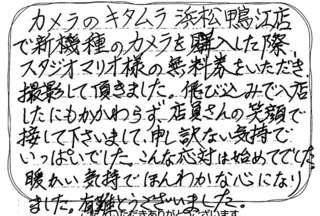 カメラのキタムラ 浜松鴨江店
で新機種のカメラを購入した際、
スタジオマリオ様の無料券をいただき、
撮影して頂きました。飛び込みで入店
したにもかかわらず、店員さんの笑顔で
接して下さいまして、申し訳ない気持で
いっぱいでした。こんな応対は始めてでした。
暖かい気持でほんわかな心になり
ました。有難とうございました。
いただきありがとうございます